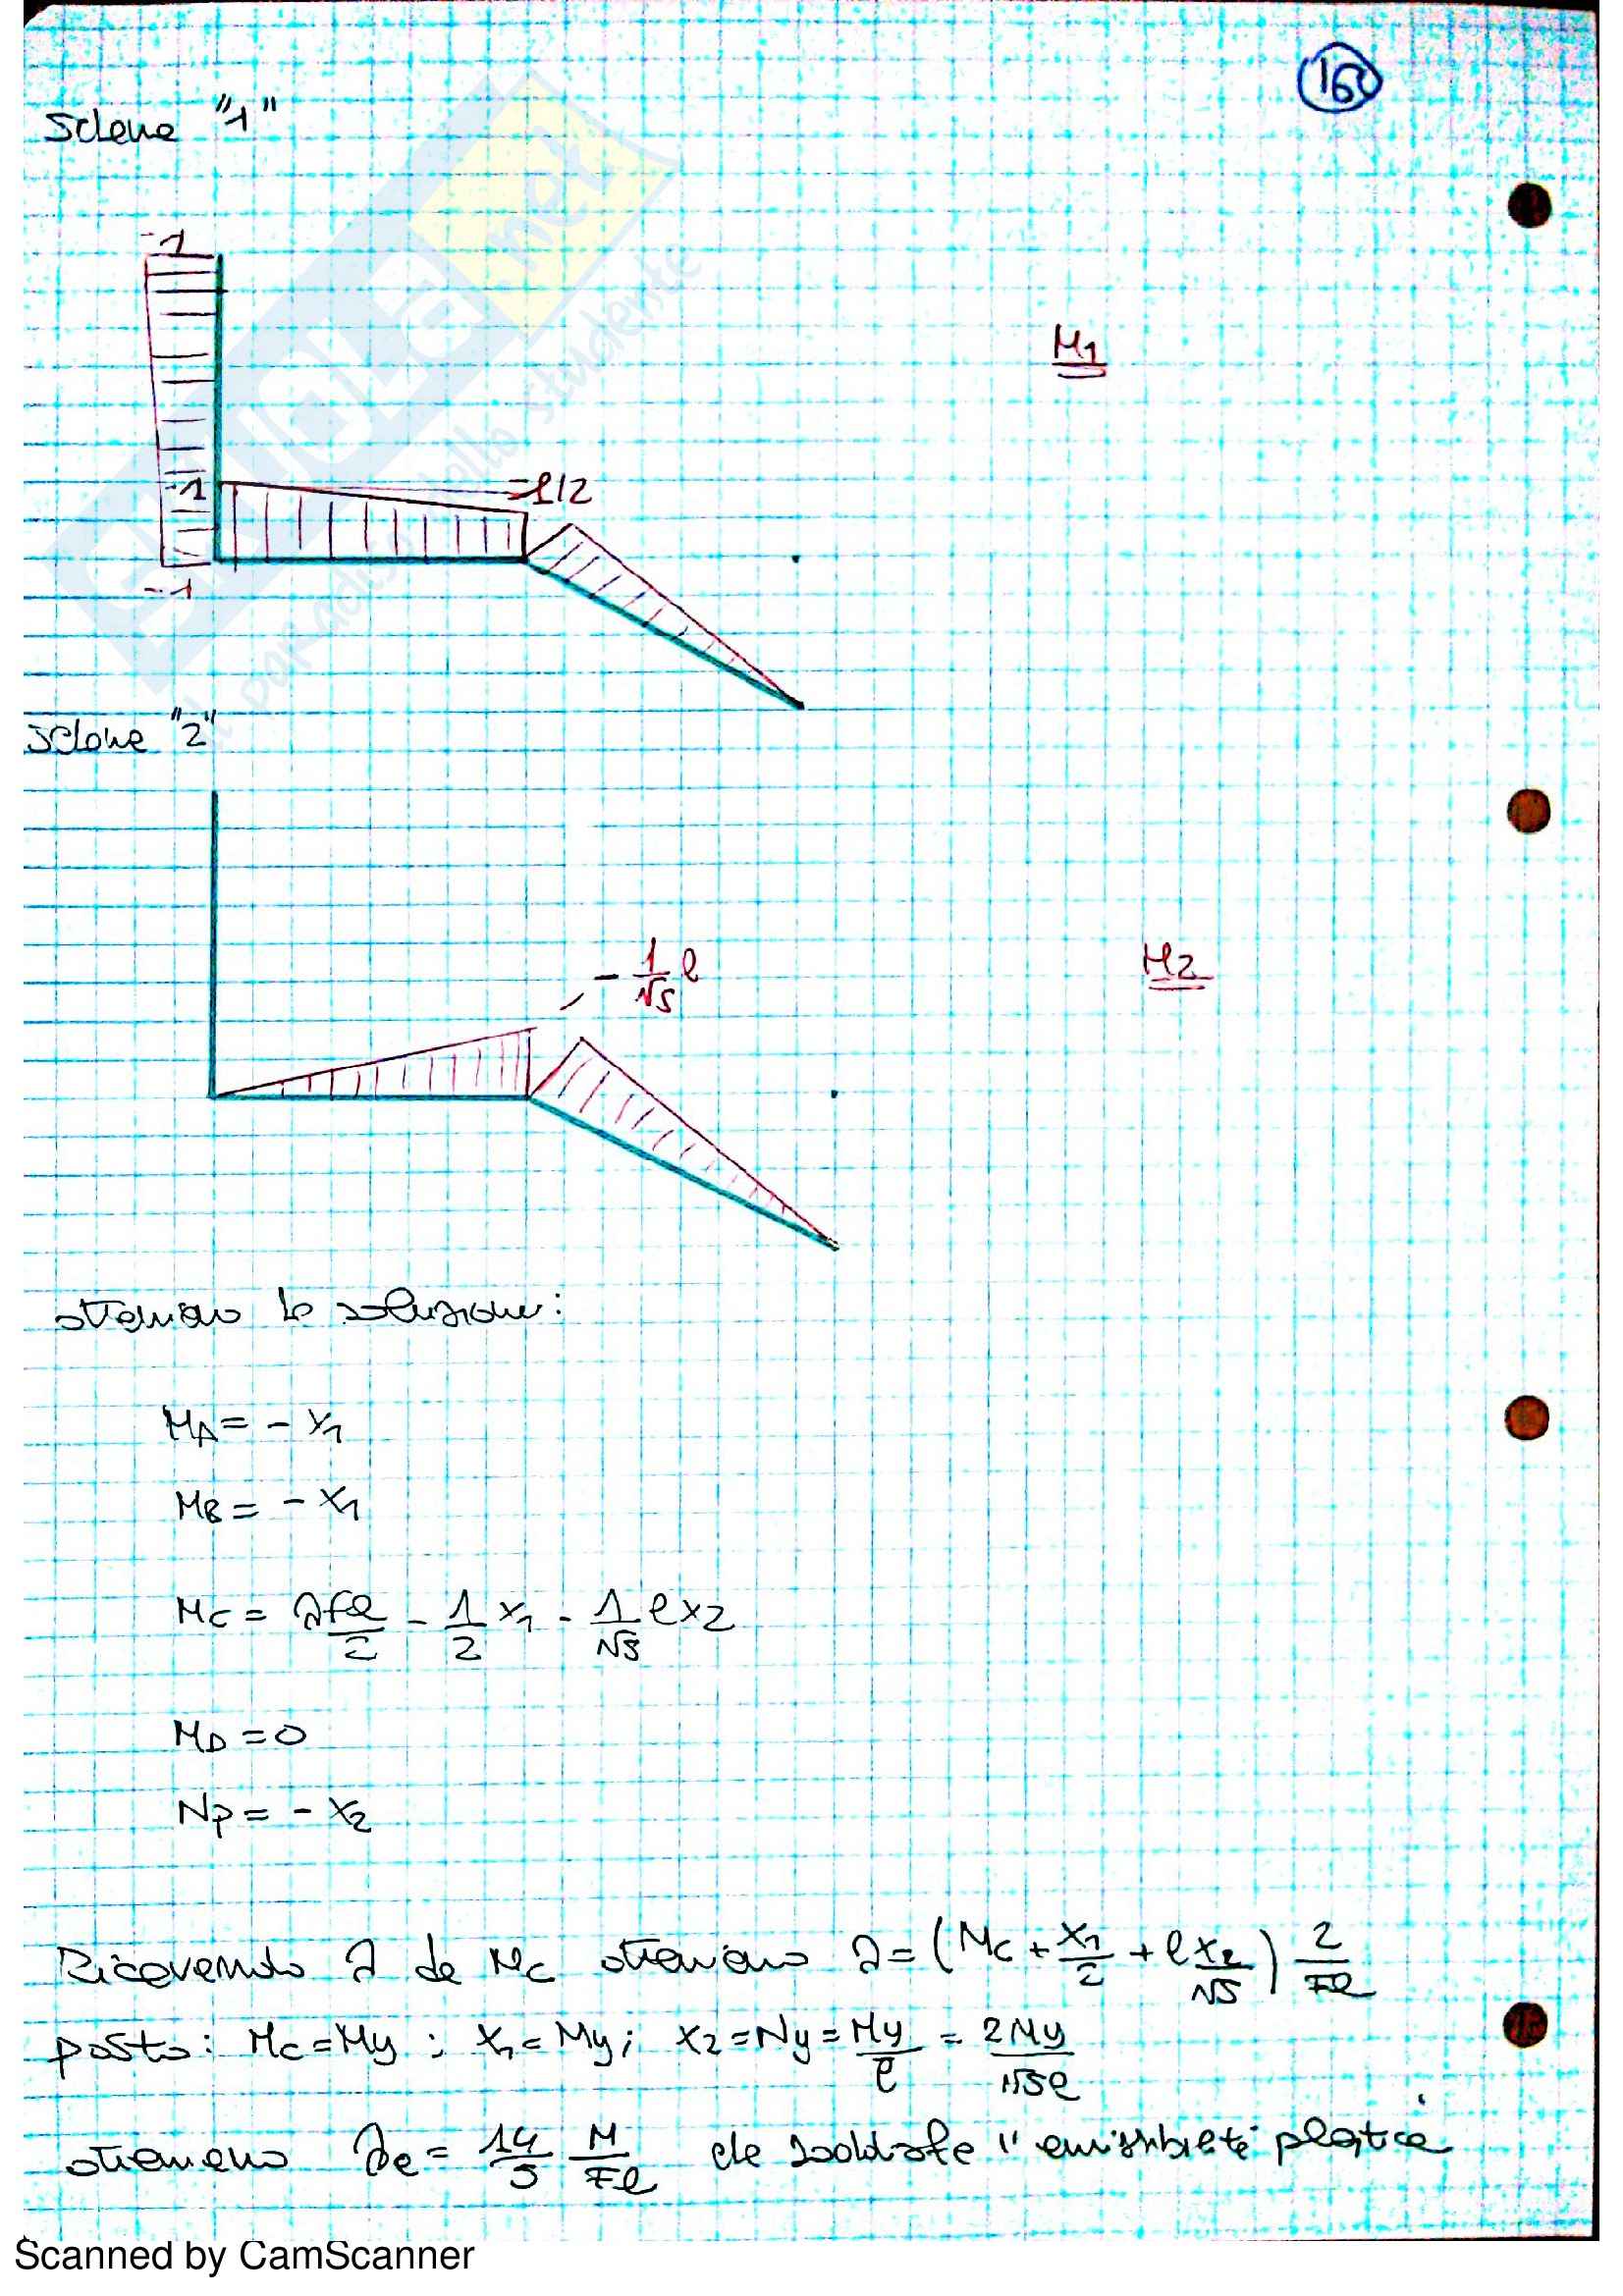 16
Schema "1"
-1
M1
-1
-1/2
-1
Schema "2"
-1/√5 l
M2
otteniamo la soluzione:
MA = - X1
MB = - X1
MC = λFl/2 - 1/2 X1 - 1/√5 l X2
MD = 0
Np = - X2
Ricavando λ da Mc otteniamo λ = (Mc + X1/2 + l X2/√5) 2/Fl
posto: Mc = My ; X1 = My ; X2 = Ny = My/l = 2My/√5l
otteniamo λe = 14/5 M/Fl che soddisfa l'ammissibilità plastica
Scanned by CamScanner